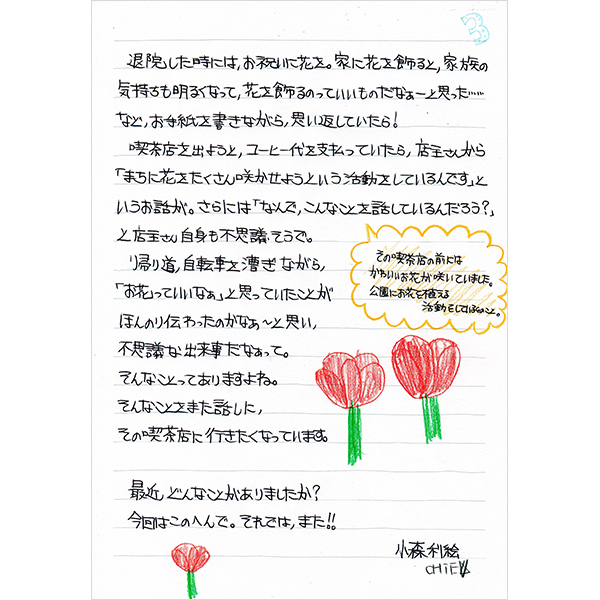 3
退院した時には、お祝いに花を。家に花を飾ると、家族の
気持ちも明るくなって、花を飾るのっていいものだなぁーと思った……
など、お手紙を書きながら、思い返していたら！
喫茶店を出ようと、コーヒー代を支払っていたら、店主さんから
「まちに花をたくさん咲かせようという活動をしているんです」と
いうお話が。さらには「なんで、こんなことを話しているんだろう？」
と店主さん自身も不思議そうで。
帰り道、自転車を漕ぎながら、
「お花っていいなぁ」と思っていたことが
ほんのり伝わったのかなぁ〜と思い、
不思議な出来事だなぁって。
そんなことってありますよね。
そんなことをまた話した、
その喫茶店に行きたくなっています。
その喫茶店の前には
かわいいお花が咲いていました。
公園にお花を植える
活動もしているとのこと。
最近、どんなことがありましたか？
今回はこのへんで。それでは、また！！
小森利絵
CHIE